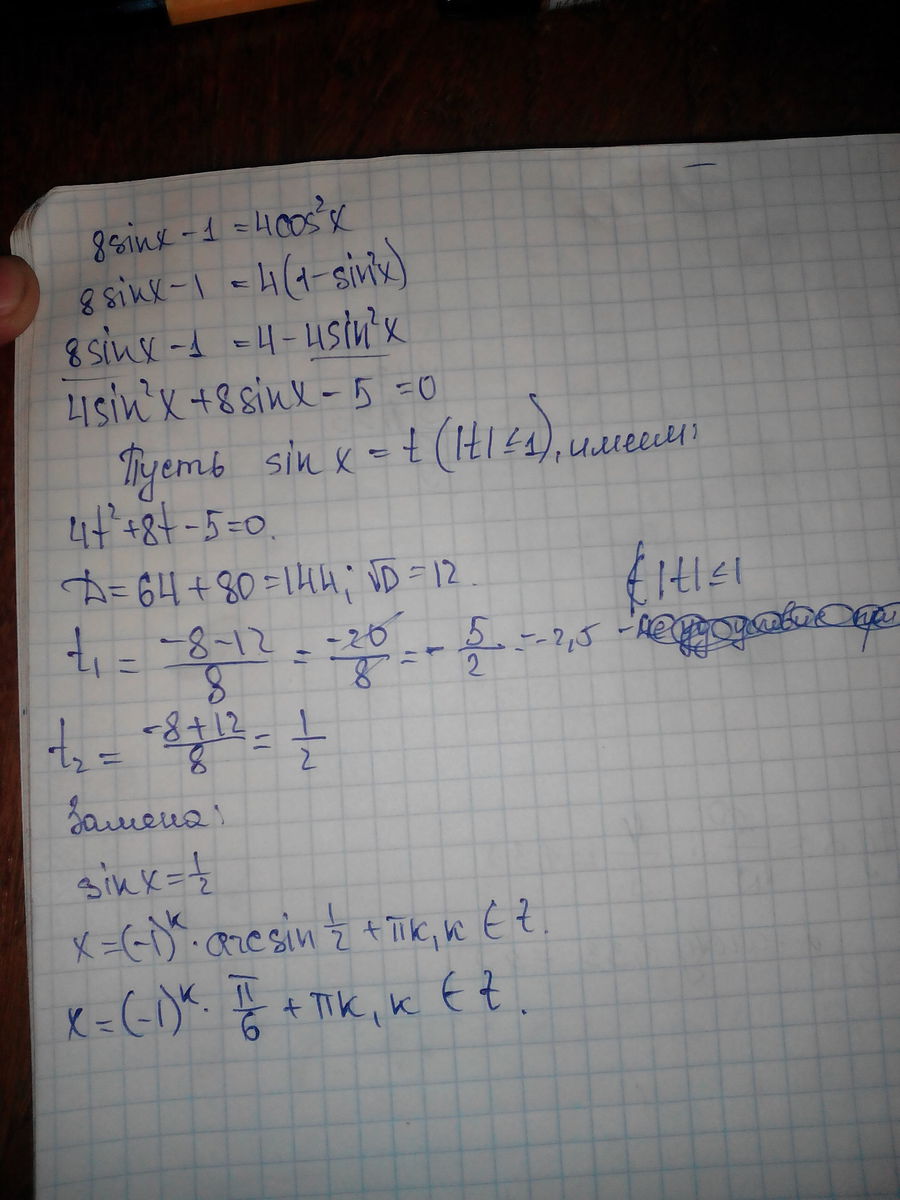 8sinx - 1 = 4cos²x
8sinx - 1 = 4(1 - sin²x)
8sinx - 1 = 4 - 4sin²x
4sin²x + 8sinx - 5 = 0
Пусть sin x = t (|t| ≤ 1), имеем:
4t² + 8t - 5 = 0.
D = 64 + 80 = 144; √D = 12.
t₁ = (-8-12)/8 = (-20)/8 = -5/2 = -2,5 - не ∉ |t| ≤ 1
t₂ = (-8+12)/8 = 1/2
Замена:
sinx = 1/2
x = (-1)ᵏ · arcsin 1/2 + πk, k ∈ Z.
x = (-1)ᵏ · π/6 + πk, k ∈ Z.